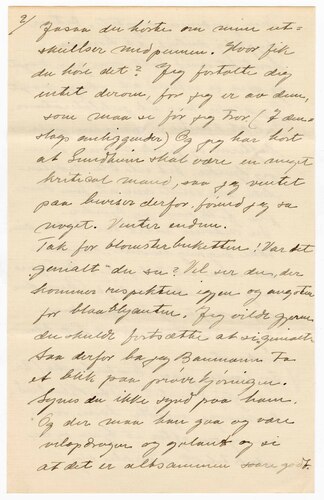 2/
Jasaa du hørte om mine ut-
skeielser med pennen. Hvor fik
du høre det? Jeg fortalte dig
intet derom, for jeg er av dem,
som maa se før jeg tror (I den
slags anliggender) Og jeg har hørt
at Sundheim skal være en meget
kritical mand, saa jeg ventet
paa beviser derfor, førend jeg sa
noget. Venter endnu.
Tak for blomsterbuketten! Var det
"genialt" du sa? Vel ser du, der
kommer respekten igjen og angsten
for blaablyanten. Jeg vilde gjerne
du skulde fortsætte at si genialt
Saa derfor ba jeg Baumann ta
et blik paa prøvekjøringen.
Synes du ikke synd paa ham.
Og der maa han gaa og være
velopdragen og galant og si
at det er altsammen saare godt.